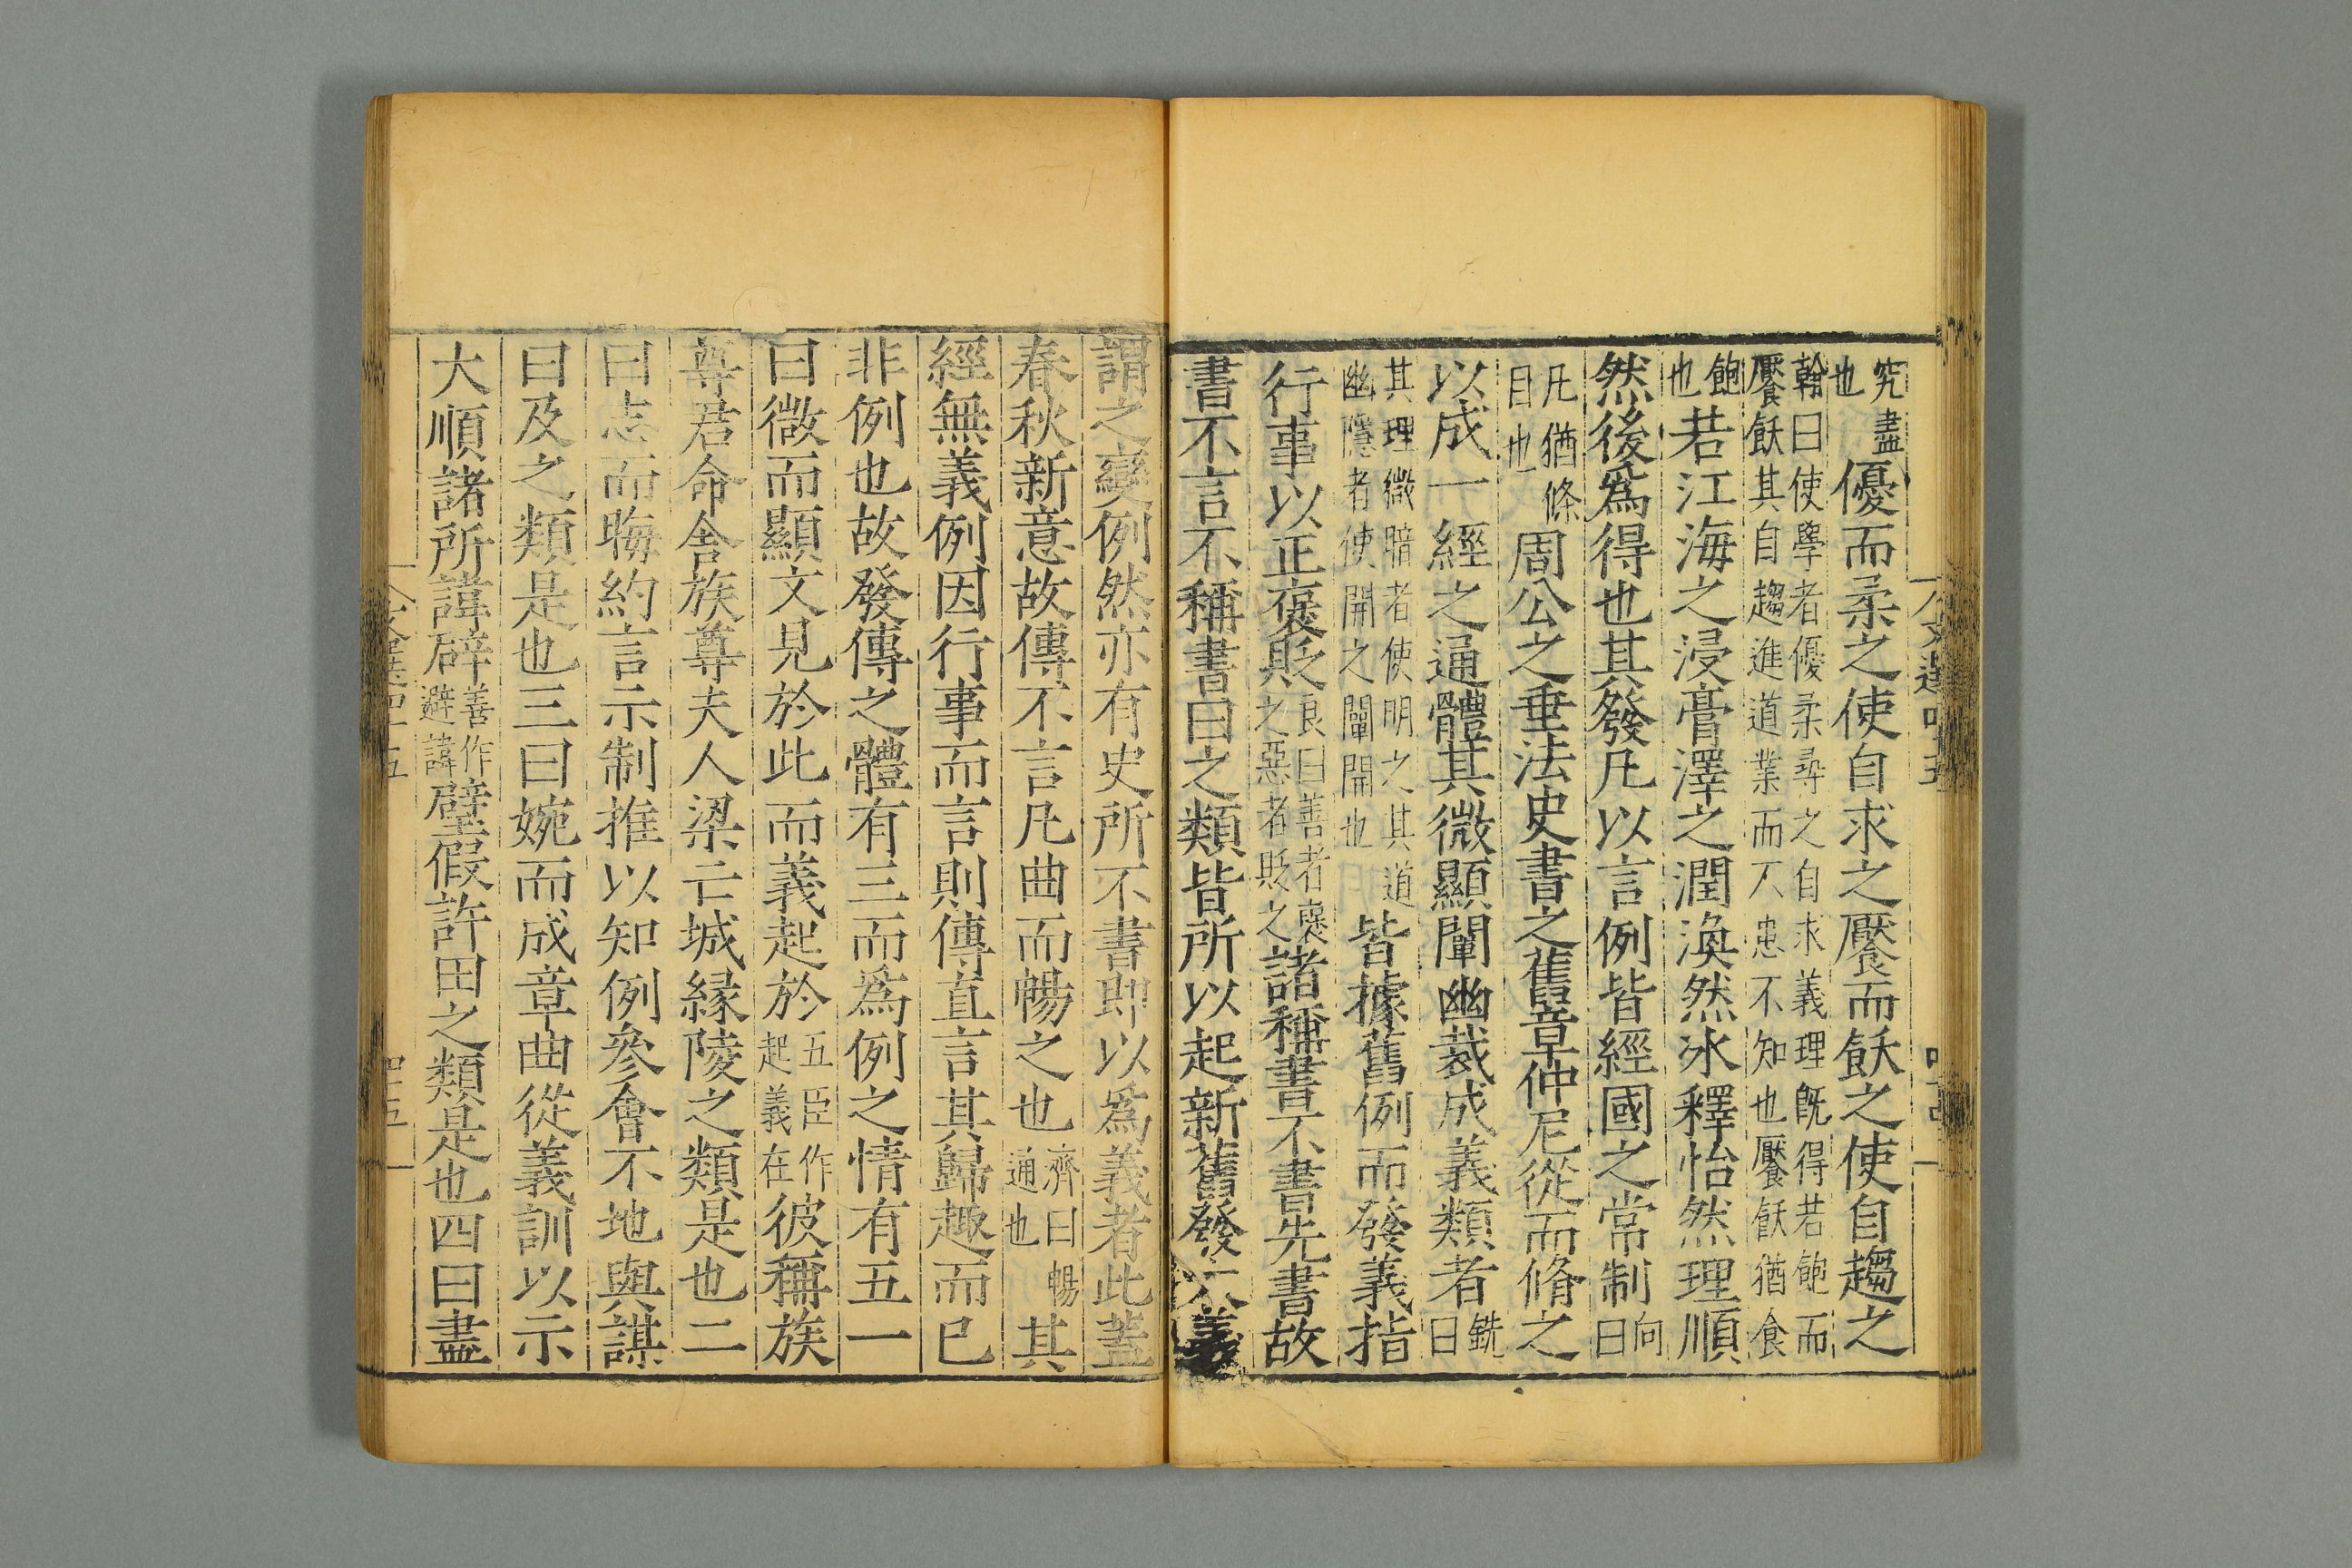 究盡也優而柔之使自求之饜而飫之使自趨之
翰曰使學者優柔尋之自求義理既得若飽而饜飫其自趨進道業而不患不知也饜飫猶食
飽也若江海之浸膏澤之潤渙然冰釋怡然理順
然後爲得也其發凡以言例皆經國之常制向曰
凡猶條目也周公之垂法史書之舊章仲尼從而脩之
以成一經之通體其微顯闡幽裁成義類者銑曰
其理微暗者使明之其道幽隱者使開之闡開也皆據舊例而發義指
行事以正褒貶良曰善者褒之惡者貶之諸稱書不書先書故
書不言不稱書曰之類皆所以起新舊發大義
謂之變例然亦有史所不書即以爲義者此蓋
春秋新意故傳不言凡曲而暢之也濟曰暢通也其
經無義例因行事而言則傳直言其歸趣而已
非例也故發傳之體有三而爲例之情有五一
曰微而顯文見於此而義起於五臣作起義在彼稱族
尊君命舍族尊夫人梁亡城緣陵之類是也二
曰志而晦約言示制推以知例參會不地與謀
曰及之類是也三曰婉而成章曲從義訓以示
大順諸所諱辟善作避諱璧假許田之類是也四曰盡